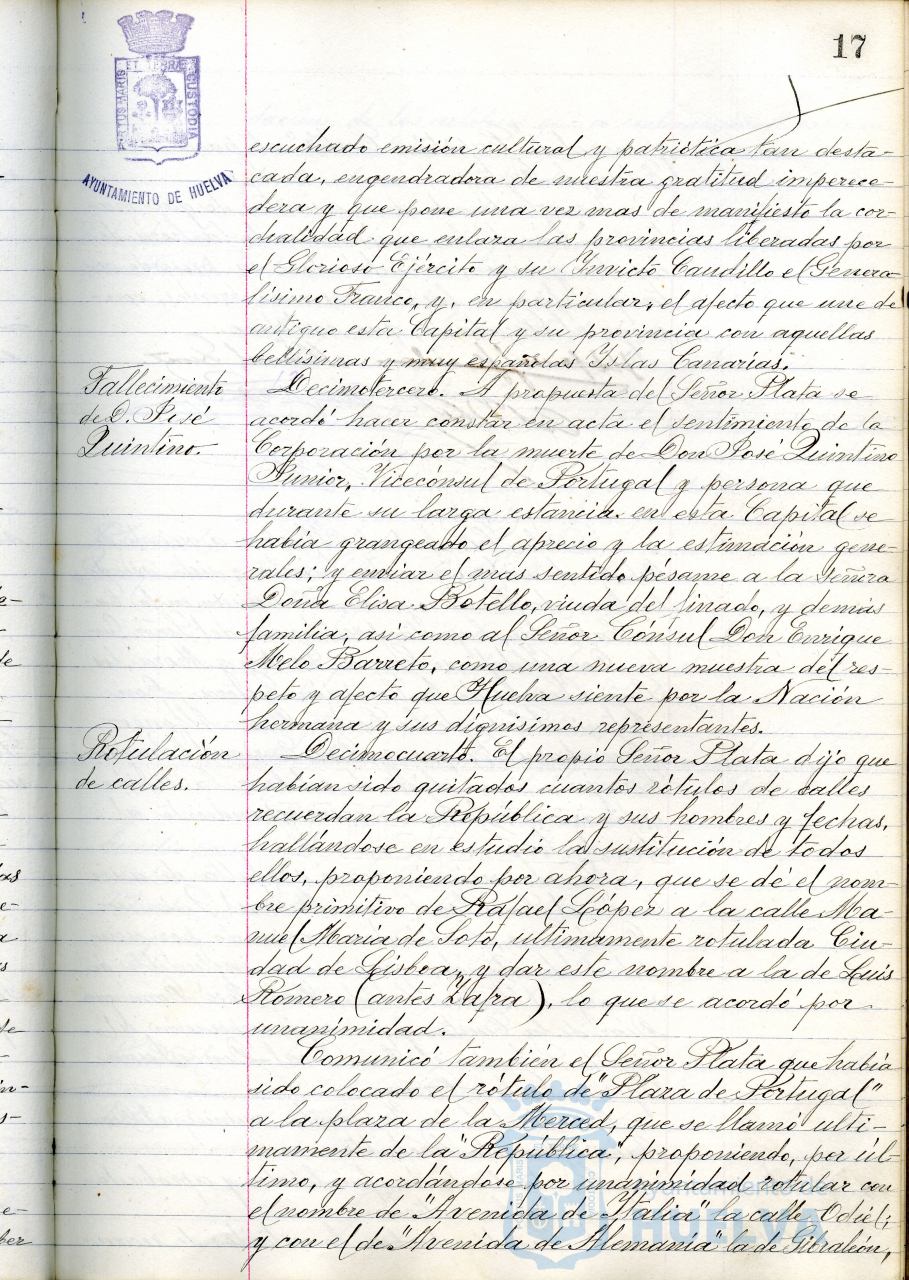 17
PORTUS MARIS ET TERRAE CUSTODIA
AYUNTAMIENTO DE HUELVA
escuchado emisión cultural y patriótica tan desta-
cada, engendradora de nuestra gratitud imperece-
dera y que pone una vez mas de manifiesto la cor-
dialidad que enlaza las provincias liberadas por
el Glorioso Ejército y su Invicto Caudillo el Genera-
lísimo Franco, y, en particular, el afecto que une de
antiguo esta Capital y su provincia con aquellas
bellísimas y muy españolas Islas Canarias.
Fallecimiento
de D. José
Quintino.
Decimotercero. A propuesta del Señor Plata se
acordó hacer constar en acta el sentimiento de la
Corporación por la muerte de Don José Quintino
Junior, Vicecónsul de Portugal y persona que
durante su larga estancia en esta Capital se
había grangeado el aprecio y la estimación gene-
rales; y enviar el mas sentido pésame a la señora
Doña Elisa Botello, viuda del finado, y demás
familia, asi como al Señor Cónsul Don Enrique
Melo Barreto, como una nueva muestra del res-
peto y afecto que Huelva siente por la Nación
hermana y sus dignisimos representantes.
Rotulación
de calles.
Decimocuarto. El propio Señor Plata dijo que
habían sido quitados cuantos rótulos de calles
recuerdan la República y sus hombres y fechas,
hallándose en estudio la sustitución de todos
ellos, proponiendo por ahora, que se dé el nom-
bre primitivo de Rafael López a la calle Ma-
nuel María de Soto, ultimamente rotulada Ciu-
dad de Lisboa, y dar este nombre a la de Luis
Romero (antes Zafra), lo que se acordó por
unanimidad.
Comunicó también el Señor Plata que había
sido colocado el rótulo de "Plaza de Portugal"
a la plaza de la Merced, que se llamó ulti-
mamente de la "República", proponiendo, por úl-
timo, y acordándose por unanimidad rotular con
el nombre de "Avenida de Italia" la calle Odiel;
y con el de "Avenida de Alemania" la de Gibraleón,
Ayuntamiento de
HUELVA